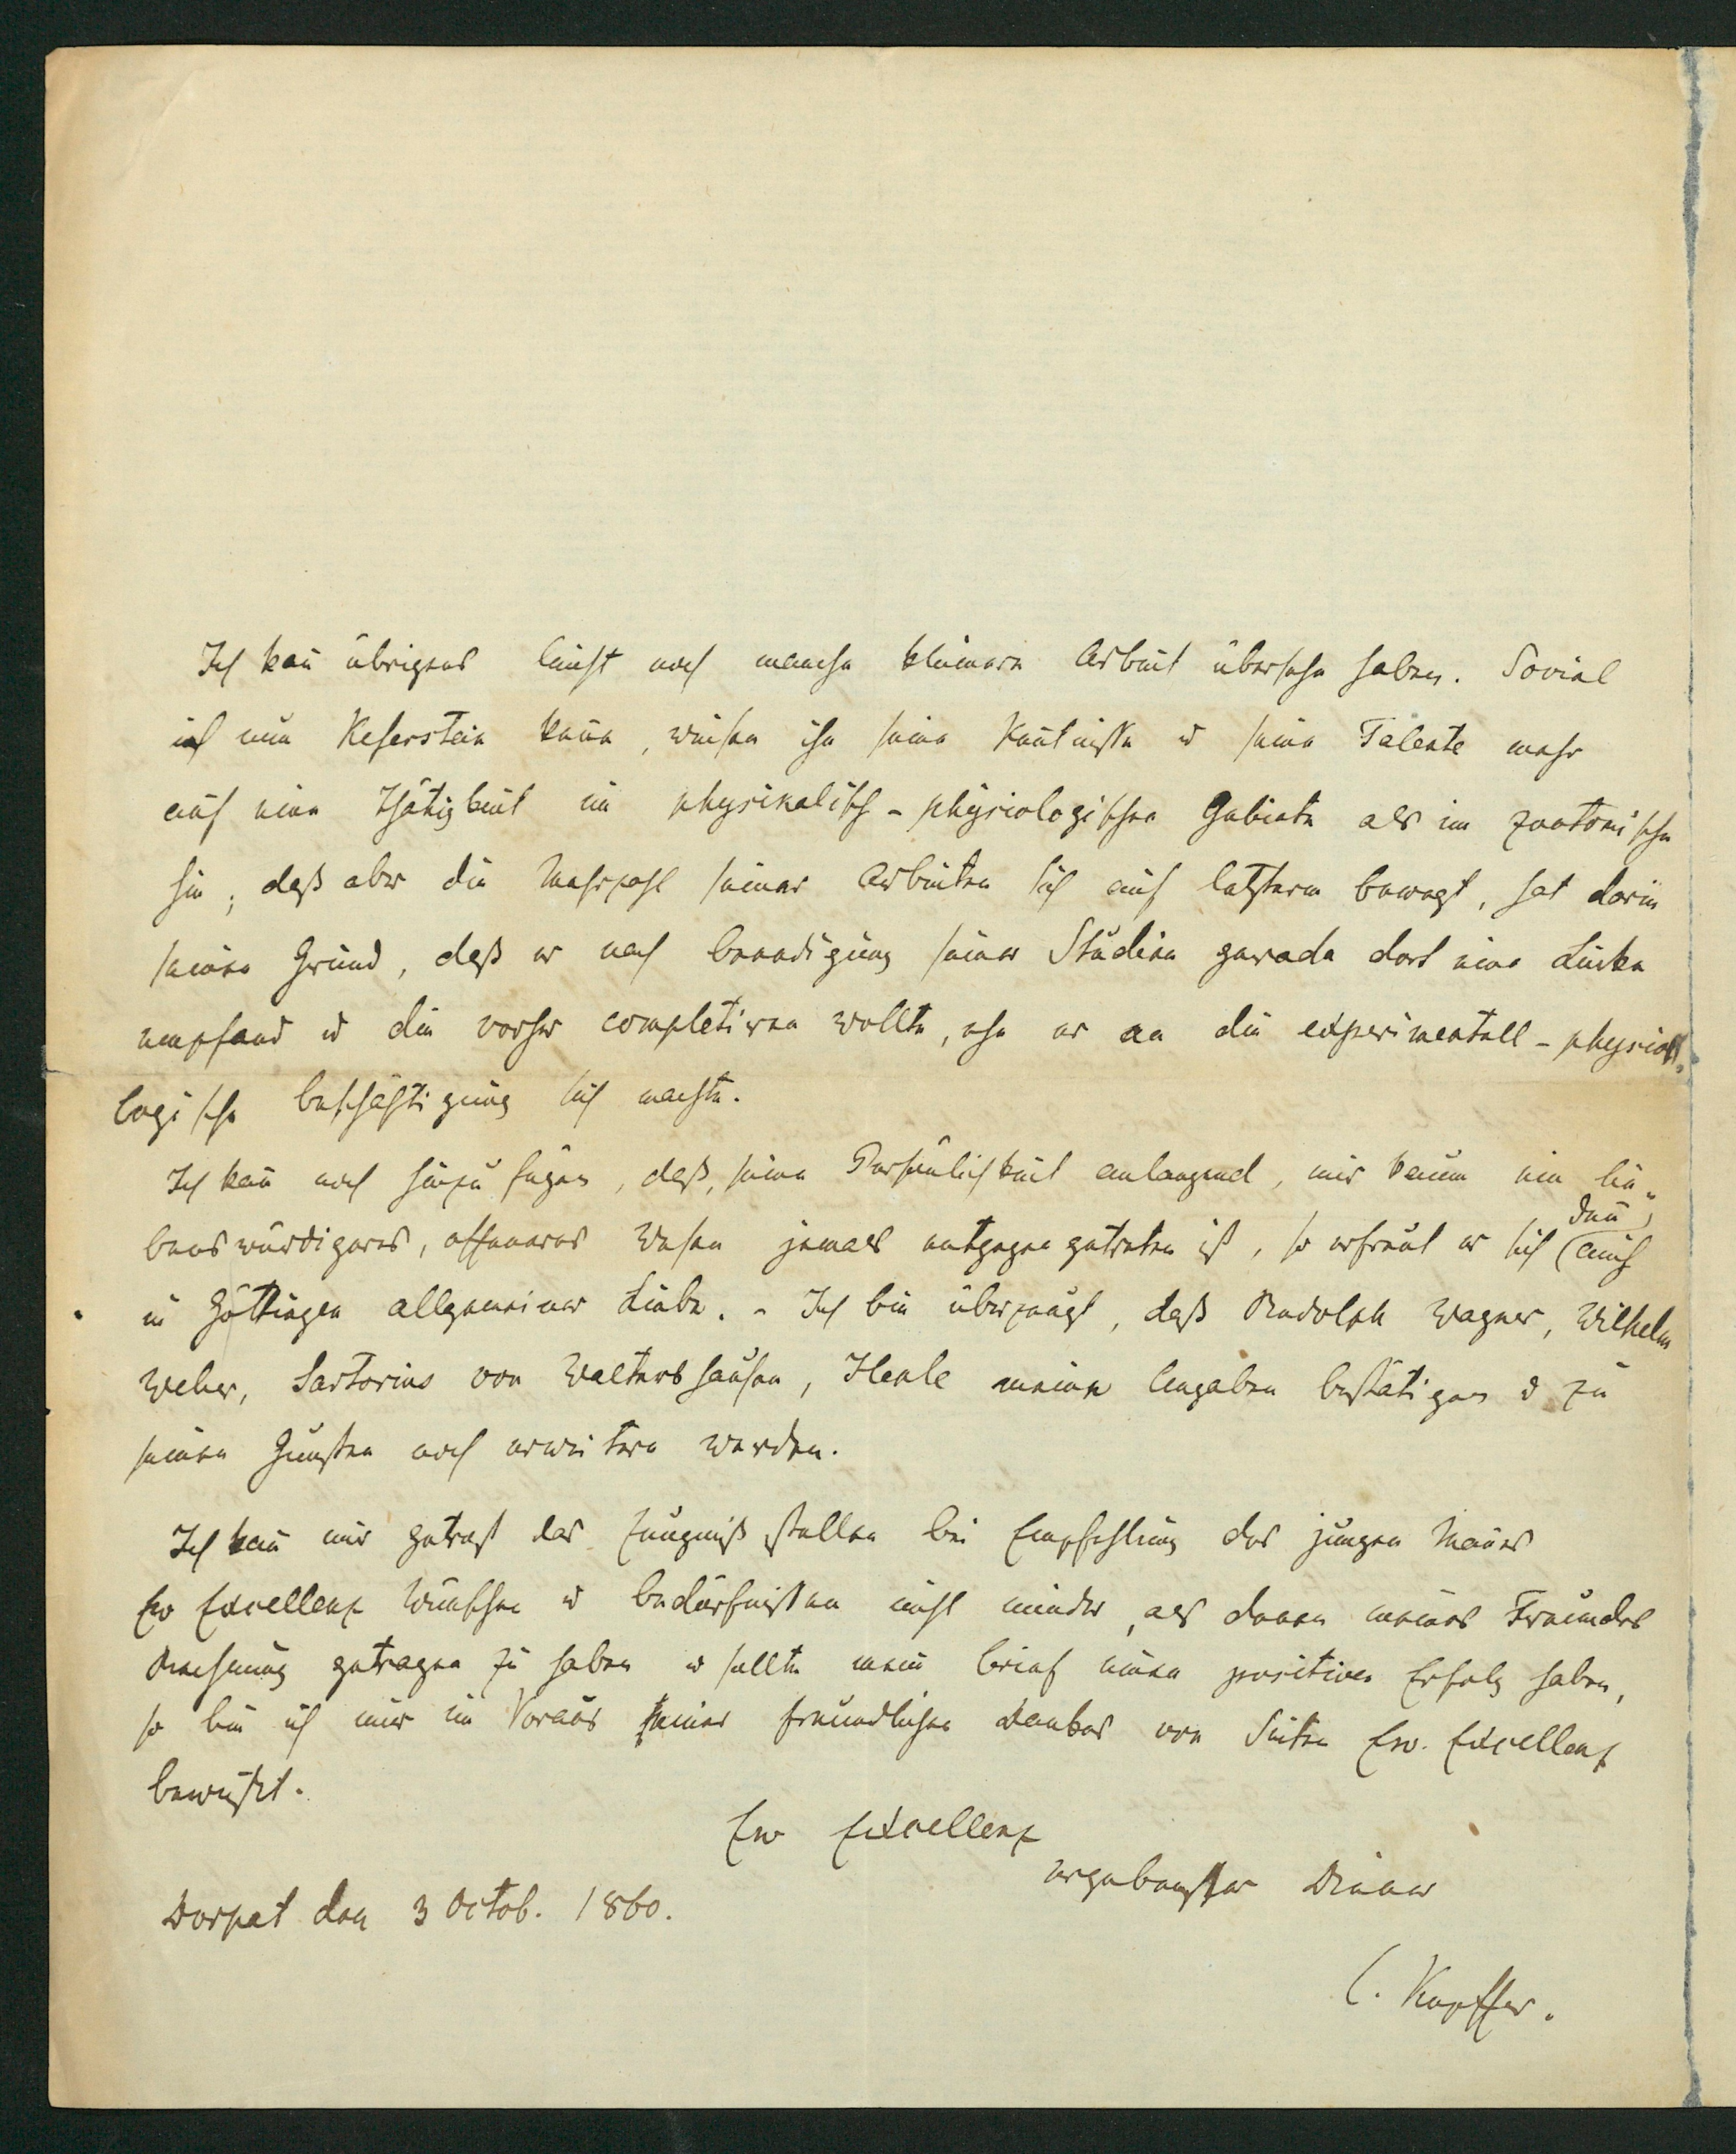 Ich kan̄ übrigens leicht noch manche kleinere Arbeit übersehn haben. Soviel
ich nun Keferstein kenne, weisen ihn seine Kentnisse u seine Talente mehr
auf eine Thätigkeit im physikalisch-physiologischen Gebiete als im zootomischen
hin; daß aber die Mehrzahl seiner Arbeiten sich auf letzterem bewegt, hat darin
seinen Grund, daß er nach Beendigung seiner Studien gerade dort eine Lücke
empfand u die vorher completiren wollte, ehe er an die experimentell-physio-
logische Beschäftigung sich machte.
Ich kan̄ noch hinzu fügen, daß, seine Persönlichkeit anlangend, mir kaum ein lie-
benswürdigeres, offeneres Wesen jemals entgegen getreten ist, so erfreut er sich den̄ auch
in Göttingen allgemeiner Liebe. - Ich bin überzeugt, daß Rudolph Wagner, Wilhelm
Weber, Sartorius von Waltershausen, Henle meine Angaben bestätigen u zu
seinen Gunsten noch erweitern werden.
Ich kan̄ mir getrost das Zeugniß stellen bei Empfehlung des jungen Man̄es
Ew Excellenz Wünschen u Bedürfnissen nicht minder, als denen meines Freundes
Rechnung getragen zu haben u sollte mein Brief einen positiven Erfolg haben,
so bin ich mir im Voraus eines freundlichen Dankes von Seiten Ew. Excellenz
bewußt.
Ew Excellenz
ergebenster Diener
Dorpat den 3 Octob. 1860.
C. Kupffer.